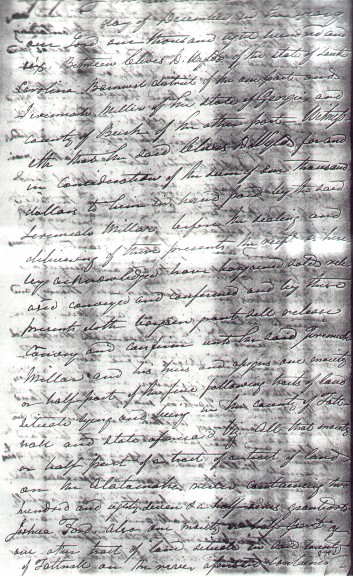 day of December in the year of
our Lord one thousand eight hundred and
six Between Cleves D. Wylds of the state of South
Carolina Barnwell district of the one part and
Jeremiah Miller of the state of Georgia and
county of Burk of the other part Witness
eth that the said Cleves D Wylds for and
in Consideration of the sum of one thousand
dollars to them in hand paid by the said
Jeremiah Miller before the sealing and
delivering of these presents the receipt is here
by acknowledged have bargained sold rele
ased conveyed and confirmed and by these
presents doth bargain grant sell release
convey and confirm unto the said Jeremiah
Miller and his heirs and assigns one moiety
or half part of the following tracts of land
situate lying and being in the county of Tatt
nall and state aforesaid All that moiety
or half part of a tract of a tract of land
on the Alatamaha river containing two
hundred and eighty seven & a half acres granted to
Joshua Ford Also one moiety or half part of
one other tract of land situate in said county
of Tattnall on the river aforesaid containing